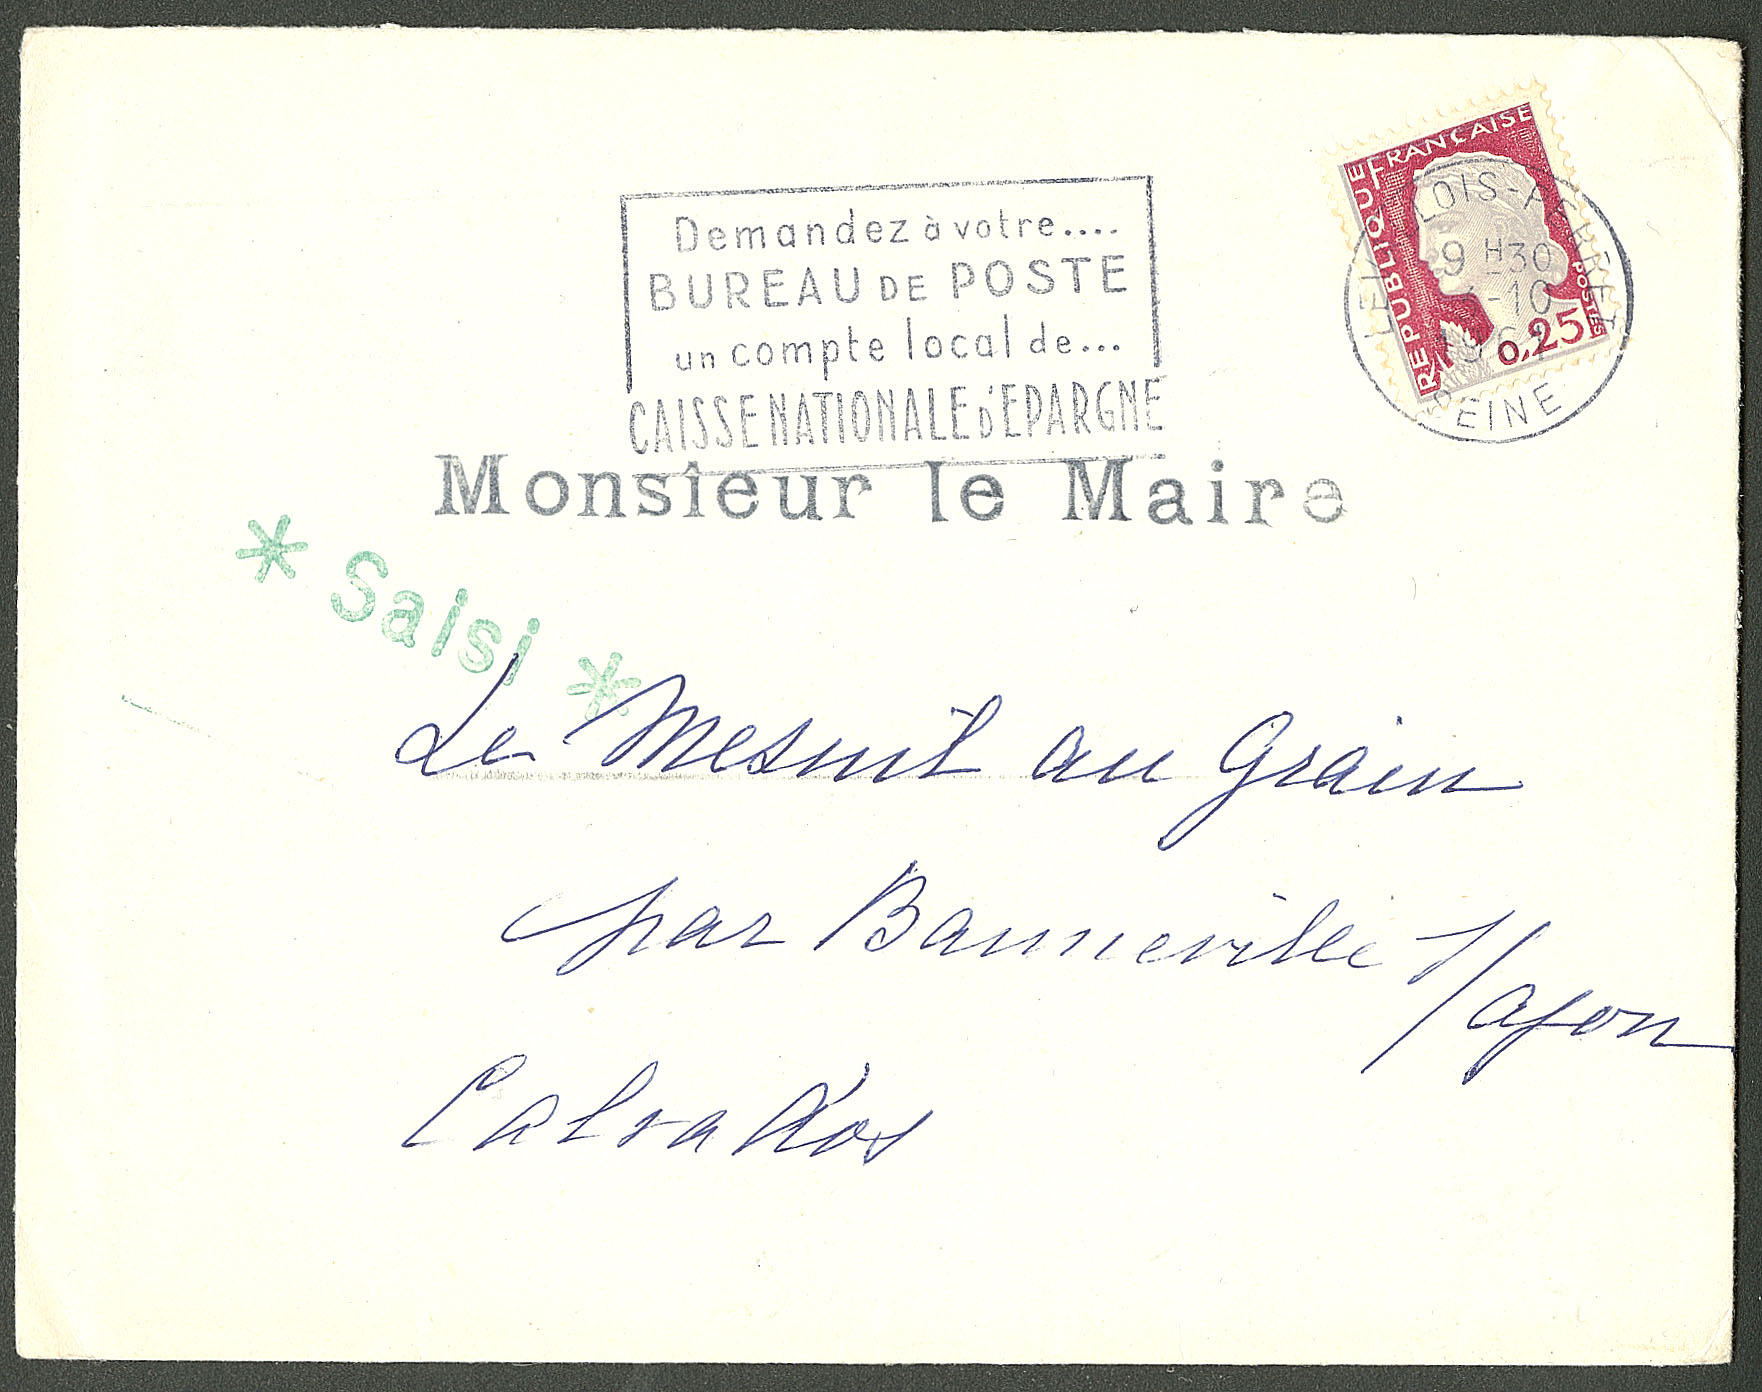 Demandez à votre....
BUREAU DE POSTE
un compte local de...
CAISSE NATIONALE D'EPARGNE
REPUBLIQUE FRANCAISE
POSTES
0,25
9 H30
-10
EINE
Monsieur le Maire
* Saisi *
Le Mesnil au Grain
par Banneville s/ajon
Calvados